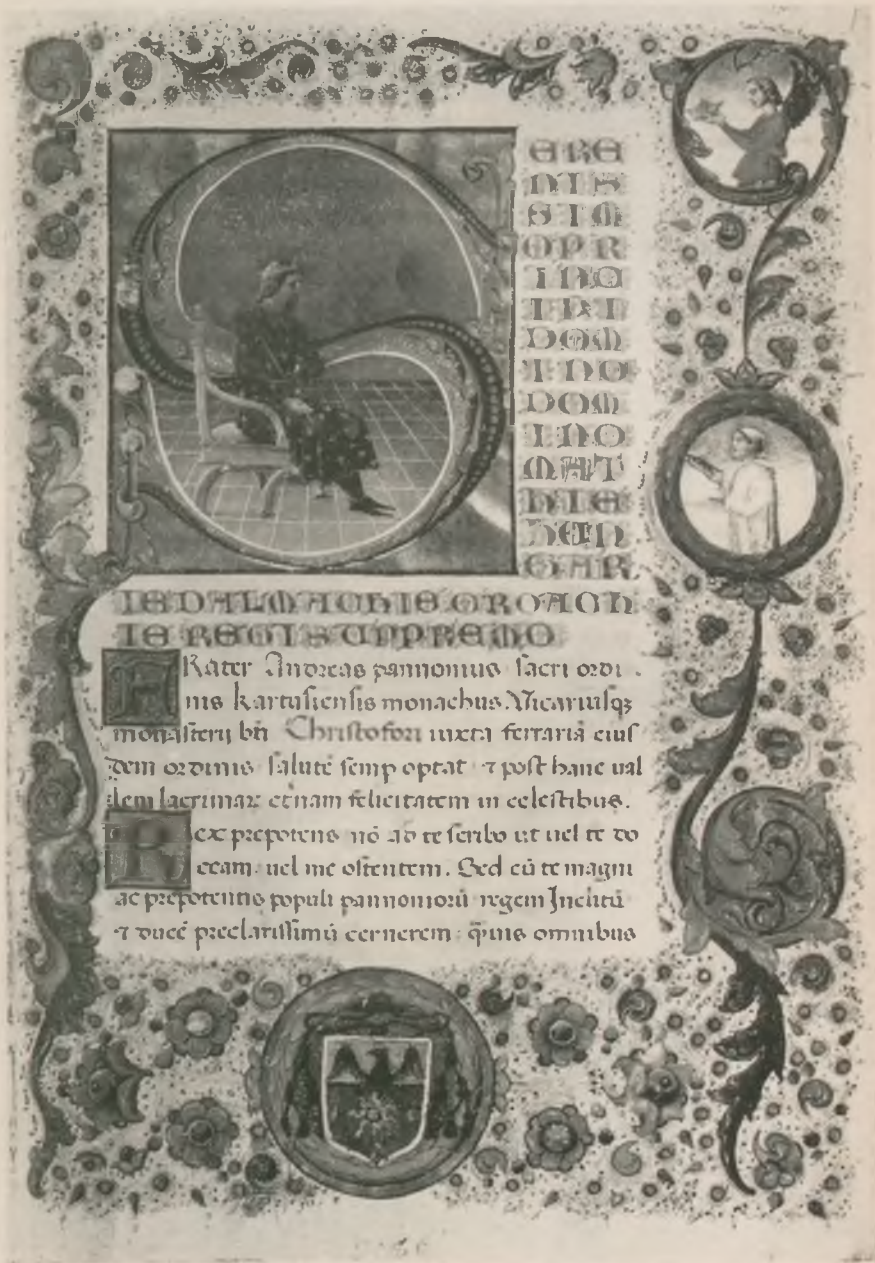 S
ERE
NIS
SIM
OPR
INC
IPI
DOM
INO
DOM
INO
MAT
HIE
HUN
GAR
IE DALMACHIE CROACH
IE REGI SUPPREMO
FRater Andreas pannonius sacri ordi
nis kartusiensis monachus. Vicariusqꝫ
monasterij bti Christofori iuxta ferrariā eius
dem ordinis salutē semp optat ⁊ post hanc ual
lem lacrimaꝝ etnam felicitatem in celestibus.
Rex prepotens nō ad te scribo ut uel te do
ceam. uel me ostentem. Sed cū te magni
ac prepotentis populi pannoniorū regem Inclitū
⁊ ducē preclarissimū cernerem q̄uis omnibus